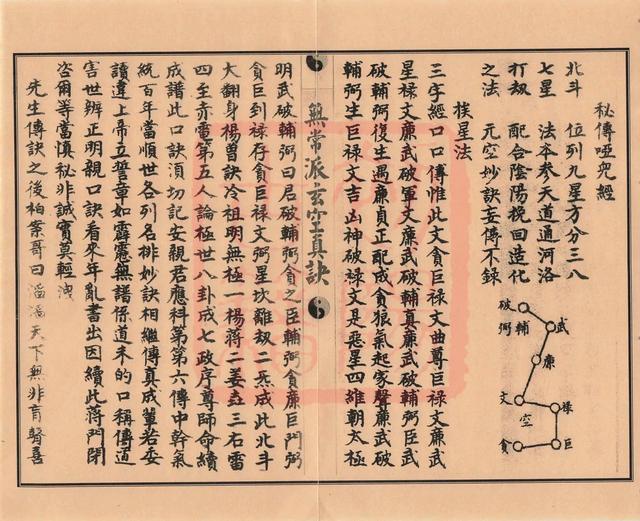 秘傳哑兜經
北斗 位列九星方分三八
七星 法夲参天道通河洛
打刼 配合陰陽挽回造化
之法 元空妙訣妄傳不錄
武
輔
破
弼
廉
文
空
祿
巨
貪
挨星法
三字經口口傳惟此文貪巨祿文曲尊巨祿文廉武
星祿文廉武破軍文廉武破輔真廉武破輔弼臣武
破輔弼復生遇廉貞正配成貪狼氣起家聲廉武破
輔弼生巨祿文吉凶神破祿文是惡星四維朝太極
無常派玄空真訣
明武破輔弼曰君破輔弼貪之臣輔弼貪廉巨門弼
貪巨到祿存貪巨祿文弼星坎離刼二炁成此北斗
大翻身楊曽訣冷祖明無極一楊蒋二姜垚三右雷
四至赤霄第五人論極世八卦成七政序尊師命續
成譜此口訣須切記安親君應科第第六傳中幹氣
統百年當順世各列名排妙訣相繼傳真成輩若妄
讀違上帝立誓章如霹靂無譜係道未的口稱傳道
害世辨正明親口訣看來年亂書出因續此蒋門閉
咨爾等當慎秘非誠實莫輕洩
先生傳訣之後柏桼哥曰滔滔天下無非盲聲喜